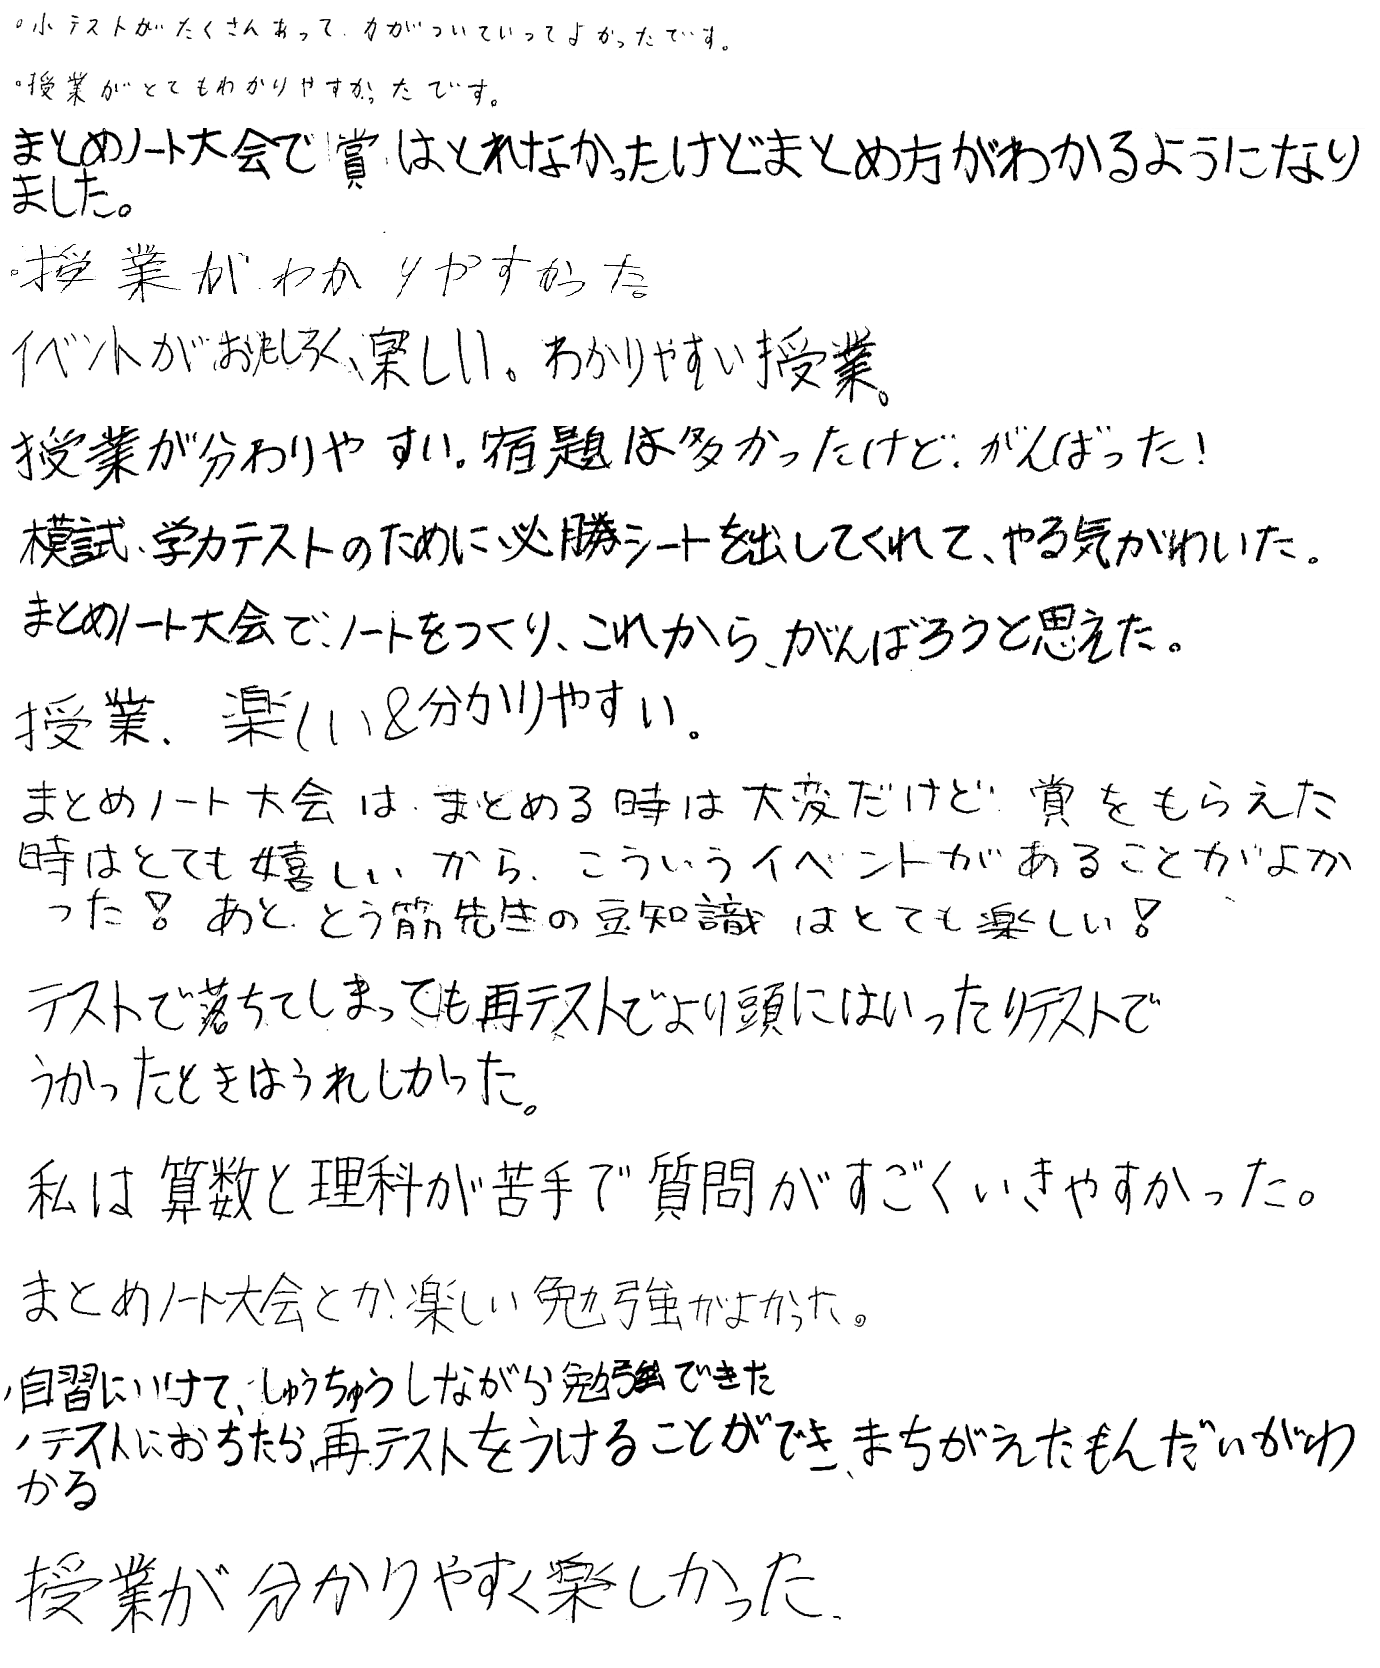 ・小テストがたくさんあって、力がついていってよかったです。
・授業がとてもわかりやすかったです。
まとめノート大会で賞はとれなかったけどまとめ方がわかるようになり
ました。
・授業がわかりやすかった。
イベントがおもしろく、楽しい。わかりやすい授業。
授業が分わりやすい。宿題は多かったけど、がんばった!
模試、学力テストのために必勝シートを出してくれて、やる気がわいた。
まとめノート大会で、ノートをつくり、これから、がんばろうと思えた。
授業、楽しい&分かりやすい。
まとめノート大会は、まとめる時は大変だけど、賞をもらえた
時はとても嬉しいから、こういうイベントがあることがよか
った!あと、とう筋先生の豆知識はとても楽しい!
テストで落ちてしまっても再テストでより頭にはいったりテストで
うかったときはうれしかった。
私は算数と理科が苦手で質問がすごくいきやすかった。
まとめノート大会とか、楽しい勉強がよかった。
・自習にいけて、しゅうちゅうしながら勉強できた
・テストにおちたら、再テストをうけることができ、まちがえたもんだいがわ
かる
授業が分かりやすく楽しかった、